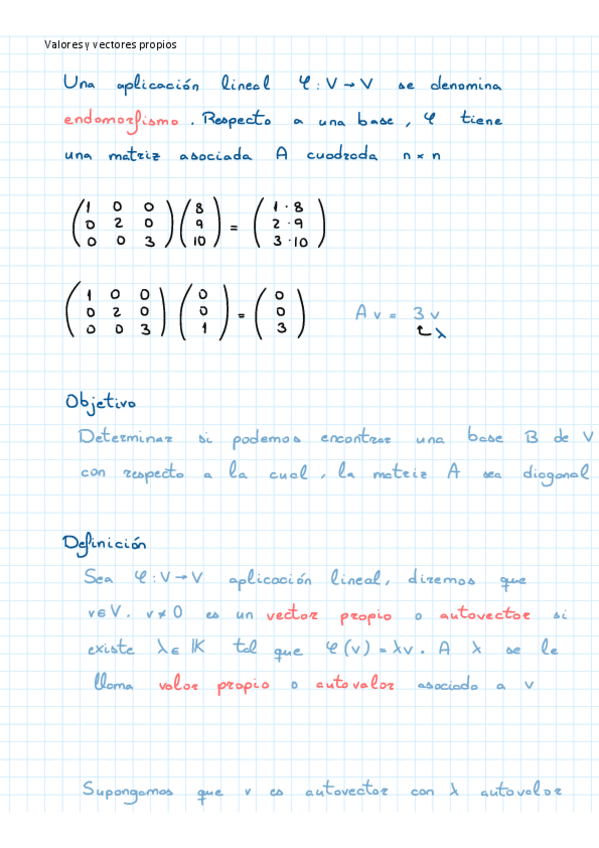 Valores y vectores propios
Una aplicación lineal φ : V → V se denomina
endomorfismo . Respecto a una base , φ tiene
una matriz asociada A cuadrada n × n
(1 0 0) (8) = (1 · 8)
(0 2 0) (9) (2 · 9)
(0 0 3) (10) (3 · 10)
(1 0 0) (0) = (0)
(0 2 0) (0) (0) A v = 3 v
(0 0 3) (1) (3) λ
Objetivo
Determinar si podemos encontrar una base B de V
con respecto a la cual , la matriz A sea diagonal
Definición
Sea φ : V → V aplicación lineal, diremos que
v ∈ V . v ≠ 0 es un vector propio o autovector si
existe λ ∈ K tal que φ (v) = λv . A λ se le
llama valor propio o autovalor asociado a v
Supongamos que v es autovector con λ autovalor